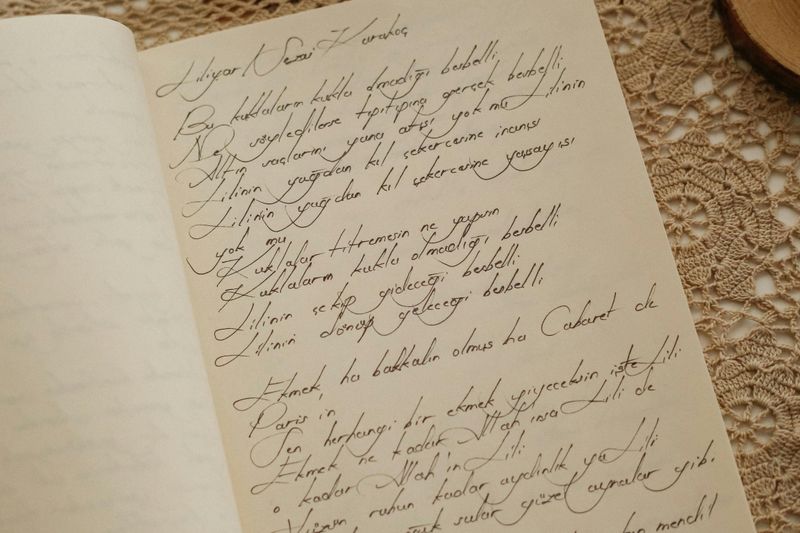 Liliyar / Sezai Karakoç
Bu kuklaların kukla olmadığı besbelli
Ne söyledilerse tıpıtıpına gerçek besbelli
Altın saçlarını yana atışı yok mu Lilinin
Lilinin yağdan kıl çekercesine inanışı
Lilinin yağdan kıl çekercesine yaşayışı
yok mu
Kuklalar titremesin ne yapsın
Kuklaların kukla olmadığı besbelli
Lilinin çekip gideceği besbelli
Lilinin dönüp geleceği besbelli
Ekmek ha bakkalın olmuş ha Cabaret de
Paris'in
Sen herhangi bir ekmek yiyeceksin işte Lili
Ekmek ne kadar Allah'ınsa Lili de
o kadar Allah'ın Lili
Yüzün ruhun kadar aydınlık ya Lili
sular güzel aynalar gibi
mendil